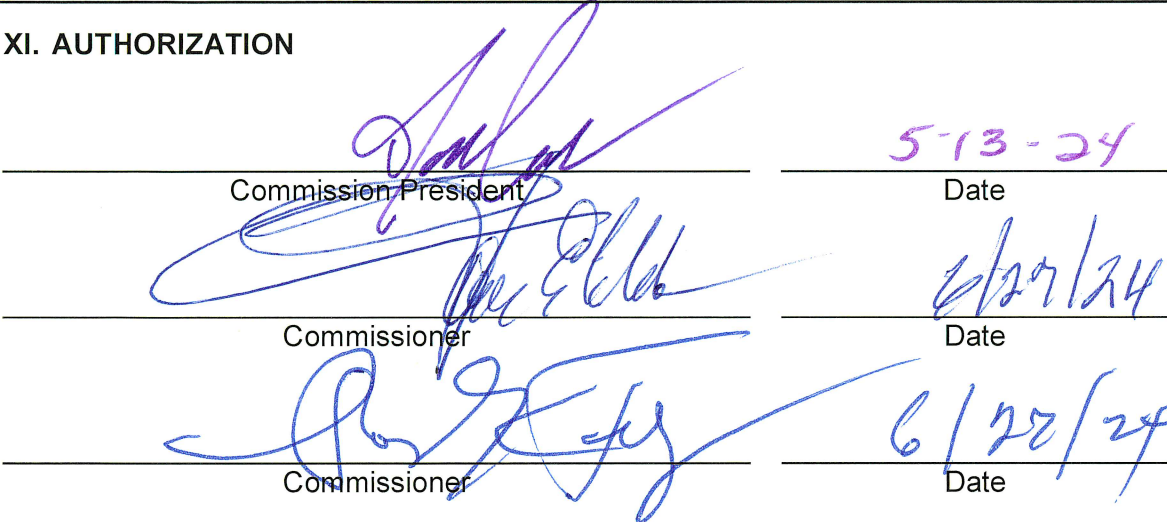 XI. AUTHORIZATION
5-13-24
Commission President Date
6/27/24
Commissioner Date
6/27/24
Commissioner Date